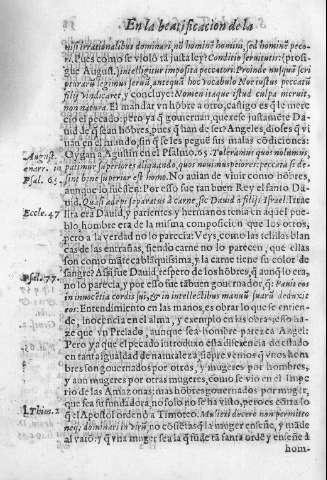 En la beatificacion de la
nisi irrationalibus dominari, nõ hominē homini, sed hominē peco-
ri. Pues como se violò tã justa ley? Conditio servitutis: (prosi-
gue August.) intelligitur imposita peccatori. Proinde nusquã scri
pturarũ legimus servũ, antequã hoc vocabulo Noe iustus peccatũ
filij vindicaret, y concluye: Nomen itaque istud culpa meruit,
non natura. El mandar vn hõbre a otro, castigo es q̃ le mere
cio el pecado: pero ya q̃ gouiernan, que
uid de q̃ sean hõbres, pues q̃ han de ser? Angeles, dioses q̃ vi
uan en el mundo, sin q̃ se les pegue sus malas cõdiciones:
August.
enarr. in
Oygan a Agustin en el Psalmo. 65. Toleramus quos nolumus,
patimur superiores aliquando, quos nouimus peiores: peccata si de-
Psal. 65.
sint bene superior est homo. No auian de viuir como hõbres,
aunque lo fuessen: Por esso fue tan buen Rey el santo Da-
uid. Quasi adeps separatus à carne, sic Dauid à filijs Israel. Israe
Eccle. 47
lita era Dauid, y parientes y hermanos tenia en aquel pue-
blo, hombre era de la misma composicion que los otros,
pero a la verdad no lo parecia: Veys, como las telillas blan
cas de las entrañas, siendo carne no lo parecen, que ellas
son como mãteca blãquissima, y la carne tiene su color de
sangre? Assi fue Dauid, respeto de los hõbres, q̃ aunq̃ lo era,
Psal. 77.
no lo parecia, y por esso fue tã buen gouernador, q̃: Pauit eos
in innocẽtia cordis sui, & in intellectibus manuũ suarũ deduxit
eos: Entendimiento en las manos, es obrar lo que se entien-
de, inocencia en el alma, y exemplo en las obras, esso ha-
ze que vn Prelado, aunque sea hombre parezca Angel:
Pero ya que el pecado introduxo esta diferencia de estado
en tanta igualdad de naturaleza, siẽpre vemos q̃ vnos hom
bres son gouernados por otros, y mugeres por hombres,
y aun mugeres por otras mugeres, como se vio en el Impe
rio de las Amazonas: mas hõbres gouernados por muger,
que sea su fundadora, no solo no se ha visto, pero es cõtra lo
1. Thim. 2
q̃ el Apostol ordenò a Timoteo. Mulieri docere non permitto
neq; dominari in virũ: no cõsiẽtas q̃ la muger enseñe, y mãde
al varõ: y q̃ vna muger sea la q̃ fũde tã santa ordẽ y enseñe à
hom-